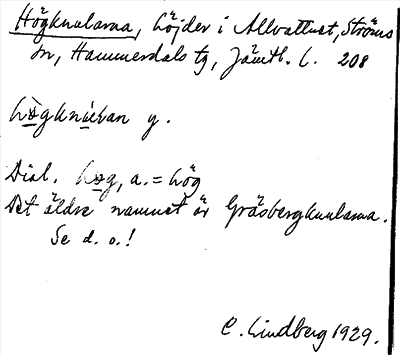 Högknularna, höjder i Allvattnet, Ströms
sn, Hammerdals tg, Jämtl. l. 208
y.
Dial. a. = hög
Det äldre namnet är Gräsbergknularna.
Se d. o.!
C. Lindberg 1929.